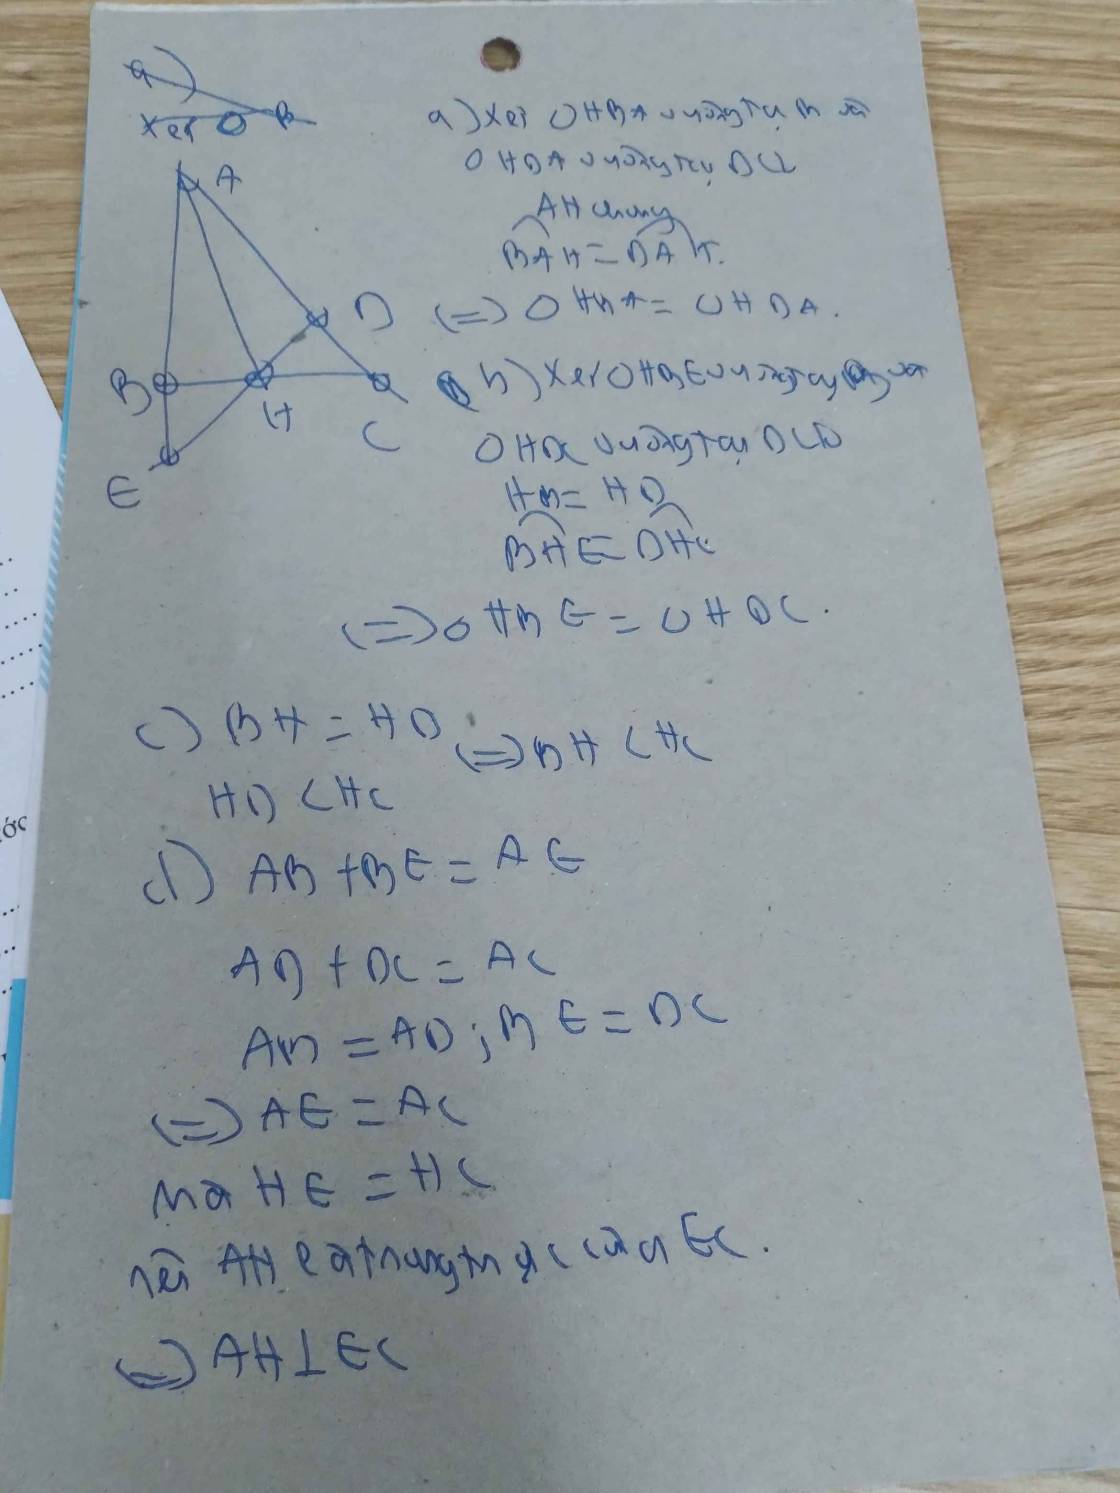 a)
Xét Δ B
A
D
B
H
C
E
a) Xét Δ HBA vuông tại B và
Δ HDA vuông tại D có
AH chung
BAH = DAH.
(=) Δ HBA = Δ HDA.
b) Xét Δ HBE vuông tại B và
Δ HDC vuông tại D có
HB = HD
BHE = DHC
(=) Δ HBE = Δ HDC.
c) BH = HD
(=) BH < HC
HD < HC
d) AB + BE = AE
AD + DC = AC
AB = AD ; BE = DC
(=) AE = AC
Mà HE = HC
nên AH là trung trực của EC.
(=) AH ⊥ EC
ớc